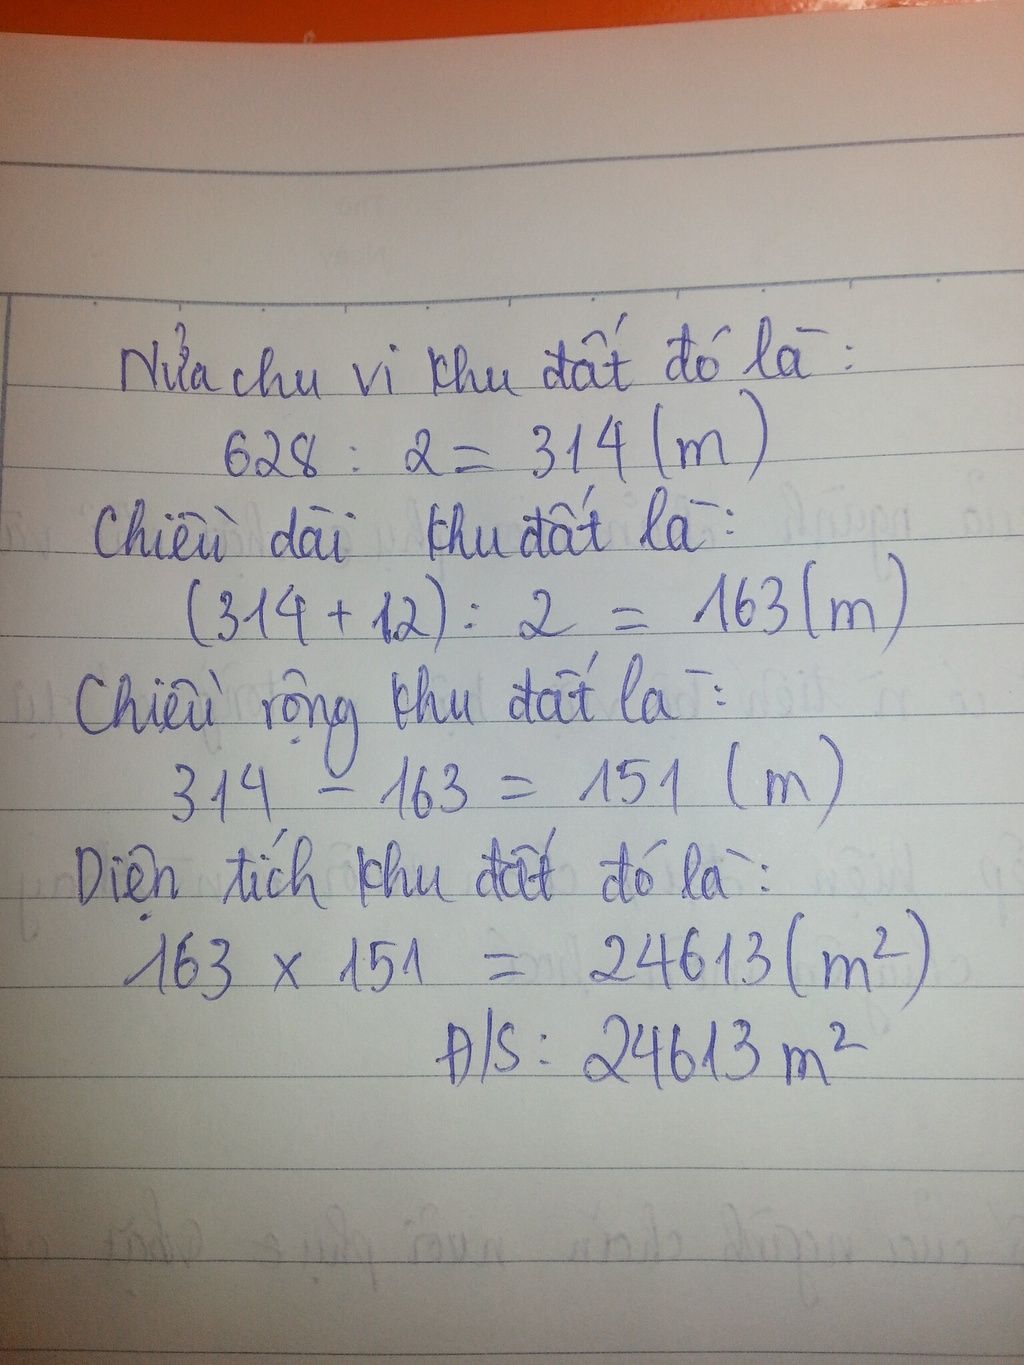 Nửa chu vi khu đất đó là:
628 : 2 = 314 (m)
Chiều dài khu đất là:
(314 + 12) : 2 = 163 (m)
Chiều rộng khu đất là:
314 - 163 = 151 (m)
Diện tích khu đất đó là:
163 x 151 = 24613 (m²)
Đ/S: 24613 m²